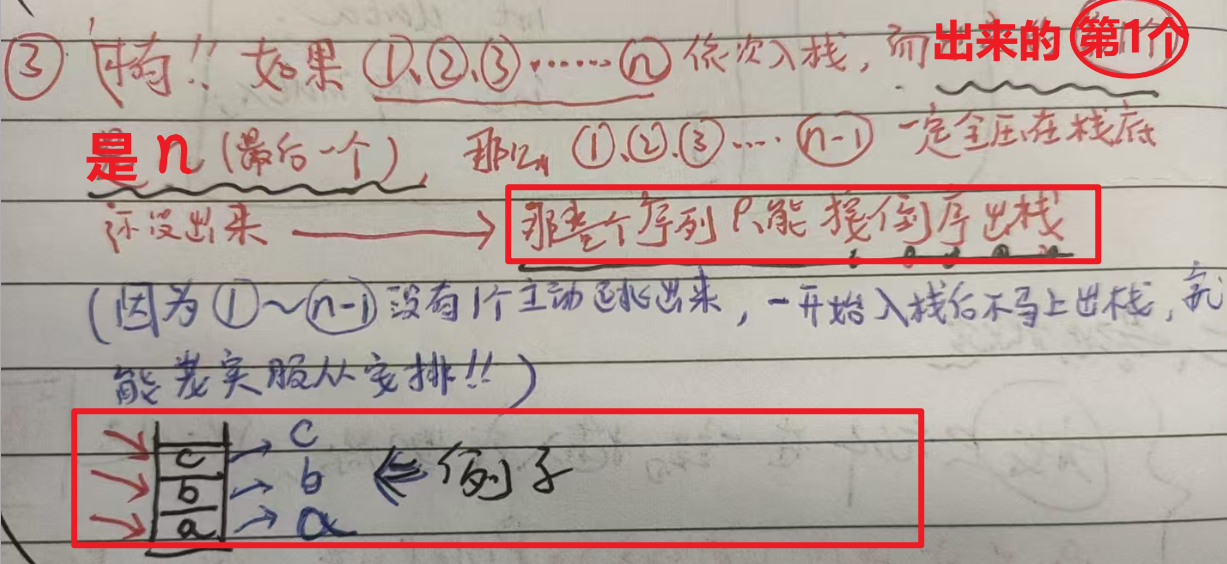 ③ 如果①、②、③……ⓝ依次入栈，而出来的第1个
是n（最后一个），那么①、②、③…(n-1)一定全压在栈底
还没出来 → 那整个序列只能按倒序出栈
（因为①～(n-1)没有1个主动逃出来，一开始入栈后不马上出栈，就
能老实服从安排!!）
c c
b b ⇐ 例子
a a